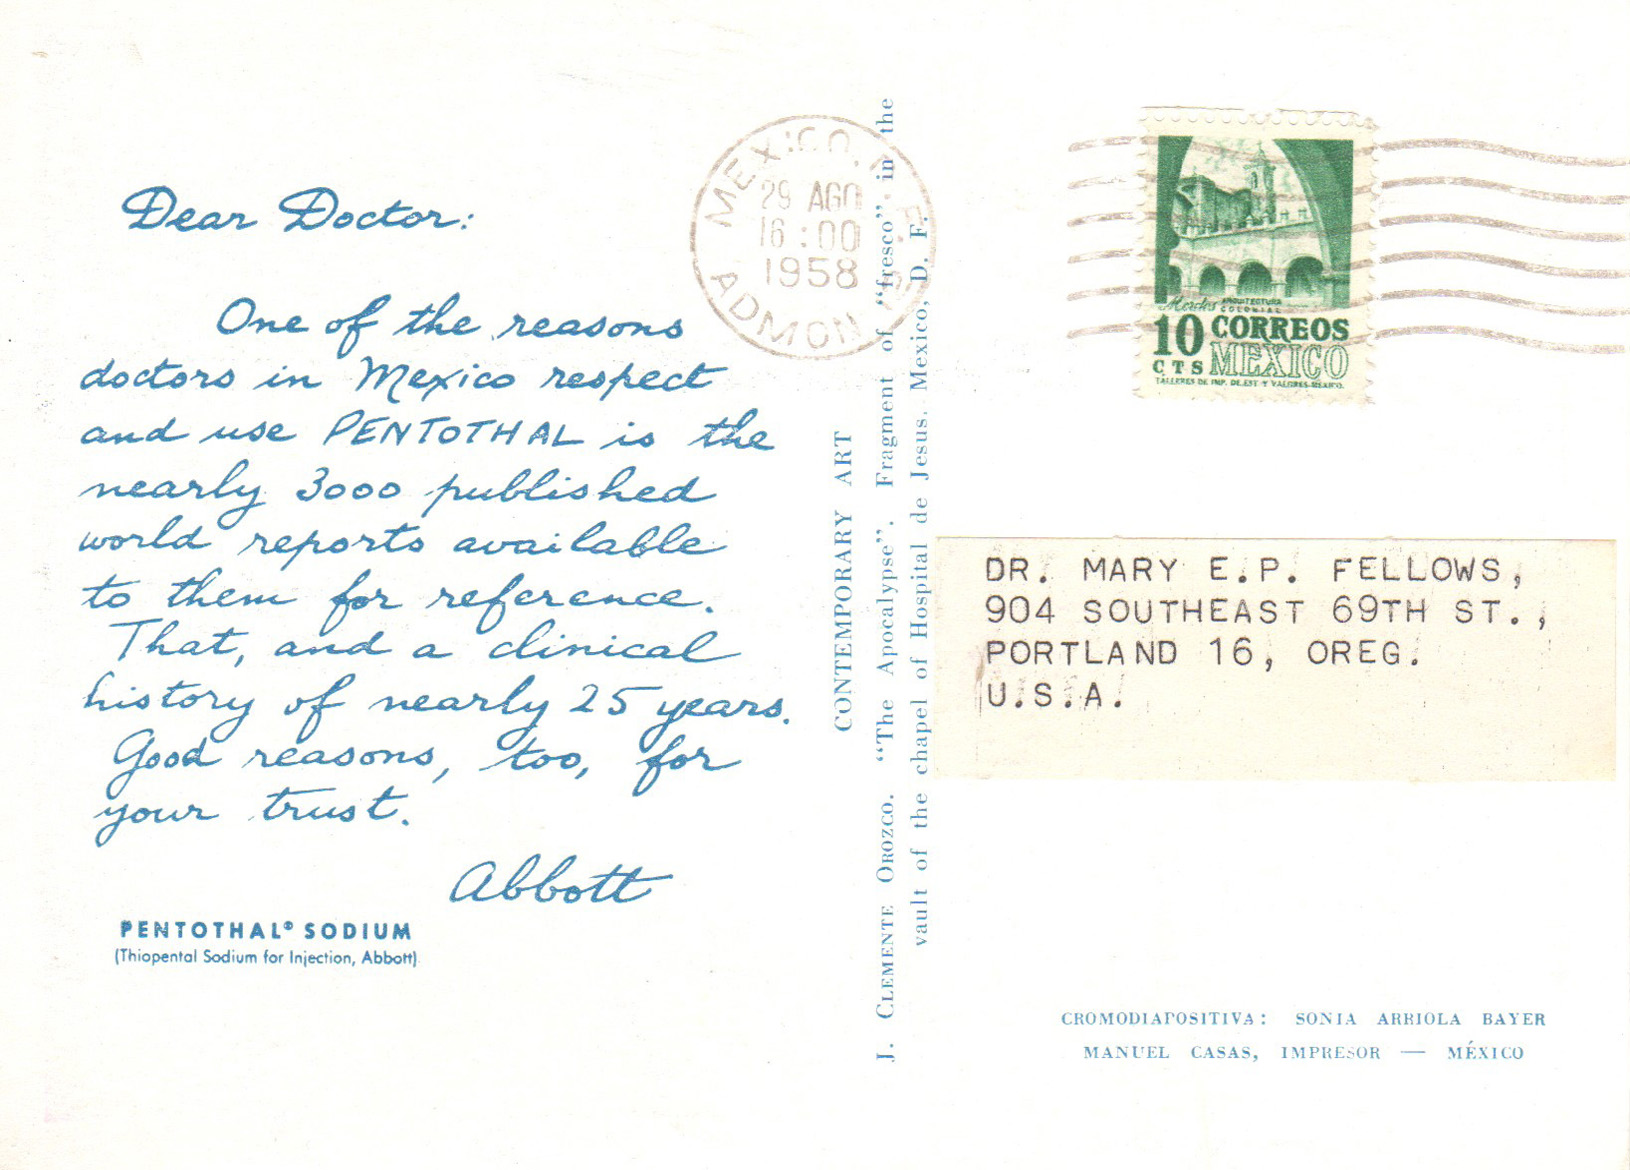 Dear Doctor:
One of the reasons
doctors in Mexico respect
and use PENTOTHAL is the
nearly 3000 published
world reports available
to them for reference.
That, and a clinical
history of nearly 25 years.
Good reasons, too, for
your trust.
Abbott
PENTOTHAL® SODIUM
(Thiopental Sodium for Injection, Abbott)
CONTEMPORARY ART
J. CLEMENTE OROZCO. "The Apocalypse". Fragment of "fresco". in the
vault of the chapel of Hospital de Jesus. Mexico, D. F.
MEXICO, D. F.
29 AGO
16:00
1958
ADMON
Morelos ARQUITECTURA
COLONIAL
10 CORREOS
CTS MEXICO
TALLERES DE IMP. DE EST. Y VALORES-MEXICO.
DR. MARY E.P. FELLOWS,
904 SOUTHEAST 69TH ST.,
PORTLAND 16, OREG.
U.S.A.
CROMODIAPOSITIVA: SONIA ARRIOLA BAYER
MANUEL CASAS, IMPRESOR — MÉXICO